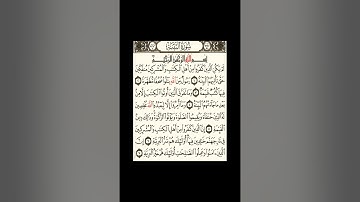 سُورَةُ البَيِّنَةِ
بِسْمِ اللَّهِ الرَّحْمَٰنِ الرَّحِيمِ
لَمْ يَكُنِ الَّذِينَ كَفَرُوا مِنْ أَهْلِ الْكِتَٰبِ وَالْمُشْرِكِينَ مُنفَكِّينَ
حَتَّىٰ تَأْتِيَهُمُ الْبَيِّنَةُ ١ رَسُولٌ مِّنَ اللَّهِ يَتْلُوا صُحُفًا مُّطَهَّرَةً ٢
فِيهَا كُتُبٌ قَيِّمَةٌ ٣ وَمَا تَفَرَّقَ الَّذِينَ أُوتُوا الْكِتَٰبَ إِلَّا مِنۢ
بَعْدِ مَا جَاءَتْهُمُ الْبَيِّنَةُ ٤ وَمَا أُمِرُوا إِلَّا لِيَعْبُدُوا اللَّهَ مُخْلِصِينَ
لَهُ الدِّينَ حُنَفَاءَ وَيُقِيمُوا الصَّلَوٰةَ وَيُؤْتُوا الزَّكَوٰةَ وَذَٰلِكَ دِينُ
الْقَيِّمَةِ ٥ إِنَّ الَّذِينَ كَفَرُوا مِنْ أَهْلِ الْكِتَٰبِ وَالْمُشْرِكِينَ
فِي نَارِ جَهَنَّمَ خَٰلِدِينَ فِيهَا أُولَٰئِكَ هُمْ شَرُّ الْبَرِيَّةِ ٦ إِنَّ
الَّذِينَ ءَامَنُوا وَعَمِلُوا الصَّٰلِحَٰتِ أُولَٰئِكَ هُمْ خَيْرُ الْبَرِيَّةِ ٧